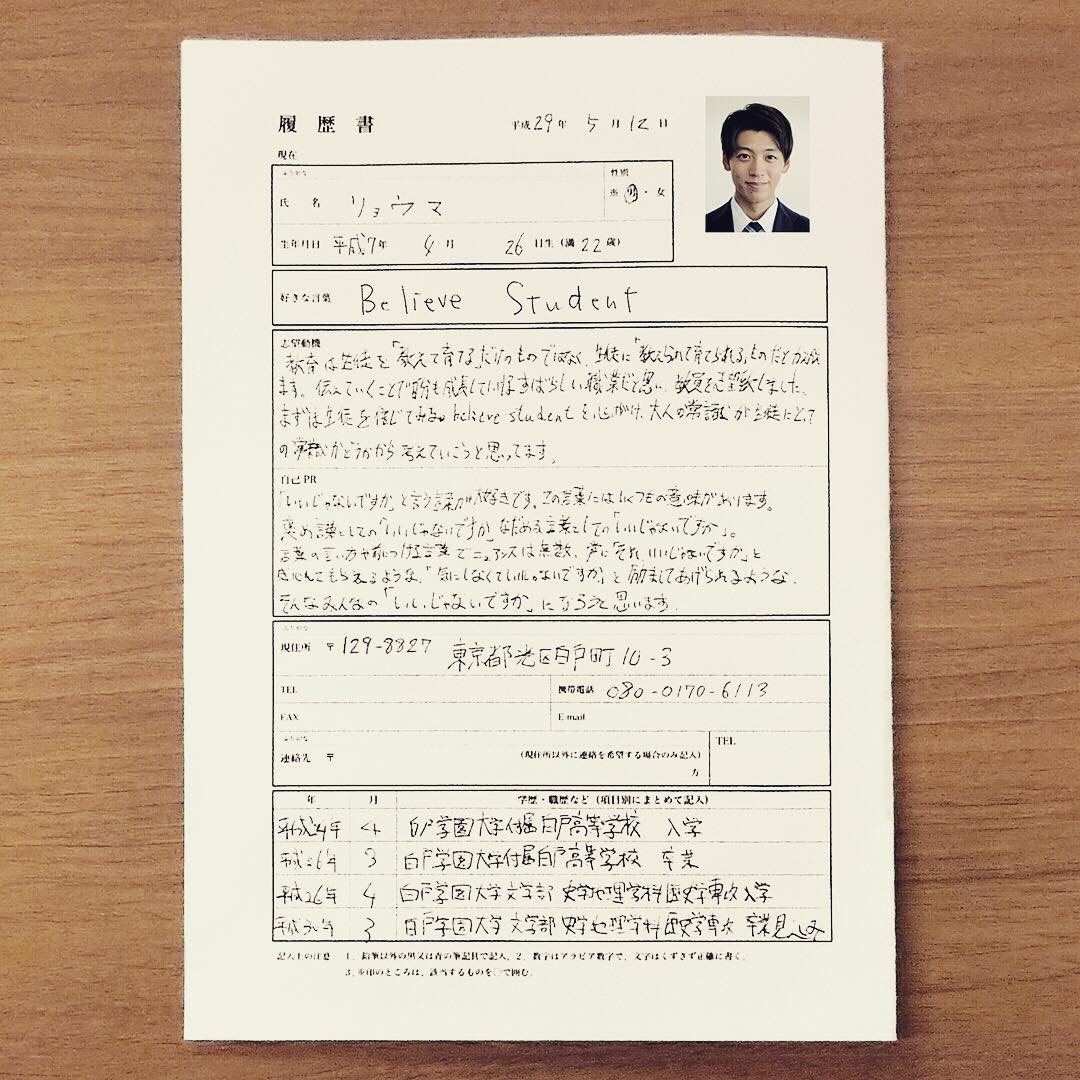 履歴書
平成29年 5月12日
現在
ふりがな
氏 名 リョウマ
性別
※ 男・女
生年月日 平成7年 4月 26日生(満22歳)
好きな言葉 Believe Student
志望動機
教育は生徒を「教えて育てる」だけのものではなく、生徒に「教えられて育てられる」ものだと考え
ます。伝えていくことで自分も成長していけるすばらしい職業だと思い、教員を志望致しました。
まずは生徒を信じてみる。believe studentを心がけ、大人の常識が生徒にとって
の常識かどうかから考えていこうと思ってます。
自己PR
「いいじゃないですか」と言う言葉が大好きです。この言葉にはいくつもの意味があります。
褒め言葉としての「いいじゃないですか」なだめる言葉としての「いいじゃないですか」。
言葉の言い方や前につける言葉でニュアンスは無数、声に「それ、いいじゃないですか」と
喜んでもらえるような、「気にしなくていいじゃないですか」と励ましてあげられるような、
そんなみんなの「いいじゃないですか」になろうと思います。
ふりがな
現住所 〒129-8827 東京都光区白戸町10-3
TEL
携帯電話 080-0170-6113
FAX
E-mail
ふりがな
連絡先 〒
(現住所以外に連絡を希望する場合のみ記入)
方
TEL
年 月 学歴・職歴など(項目別にまとめて記入)
平成24年 4 白戸学園大学付属白戸高等学校 入学
平成26年 3 白戸学園大学付属白戸高等学校 卒業
平成26年 4 白戸学園大学文学部 史学地理学科歴史学専攻入学
平成30年 3 白戸学園大学文学部 史学地理学科歴史学専攻 卒業見込み
記入上の注意 1、鉛筆以外の黒又は青の筆記具で記入、2、数字はアラビア数字で、文字はくずさず正確に書く。
3、※印のところは、該当するものを○で囲む。